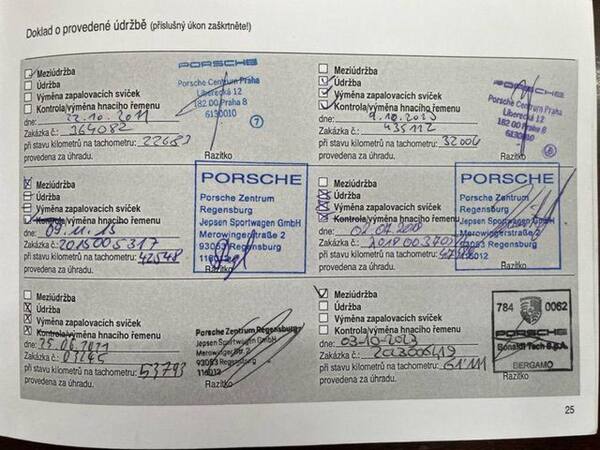 Doklad o provedené údržbě (příslušný úkon zaškrtněte!)
Meziúdržba
Údržba
Výměna zapalovacích svíček
Kontrola/výměna hnacího řemenu
dne: 22.10.2011
Zakázka č.: 364082
při stavu kilometrů na tachometru: 22683
provedena za úhradu.
Razítko
PORSCHE
Porsche Centrum Praha
Liberecká 12
182 00 Praha 8
6130010
7
Meziúdržba
Údržba
Výměna zapalovacích svíček
Kontrola/výměna hnacího řemenu
dne:
Zakázka č.: 435112
při stavu kilometrů na tachometru: 32004
provedena za úhradu.
Razítko
PORSCHE
Porsche Centrum Praha
Liberecká 12
182 00 Praha 8
6130010
Meziúdržba
Údržba
Výměna zapalovacích svíček
Kontrola/výměna hnacího řemenu
dne: 09.11.15
Zakázka č.: 2015005317
při stavu kilometrů na tachometru: 42548
provedena za úhradu.
Razítko
PORSCHE
Porsche Zentrum
Regensburg
Jepsen Sportwagen GmbH
Merowingerstraße 2
93053 Regensburg
116012
Meziúdržba
Údržba
Výměna zapalovacích svíček
Kontrola/výměna hnacího řemenu
dne:
Zakázka č.:
při stavu kilometrů na tachometru:
provedena za úhradu.
Razítko
PORSCHE
Porsche Zentrum
Regensburg
Jepsen Sportwagen GmbH
Merowingerstraße 2
93053 Regensburg
116012
Meziúdržba
Údržba
Výměna zapalovacích svíček
Kontrola/výměna hnacího řemenu
dne: 25.06.2021
Zakázka č.: 03245
při stavu kilometrů na tachometru: 53793
provedena za úhradu.
Razítko
Porsche Zentrum Regensburg
Jepsen Sportwagen GmbH
Merowingerstr. 2
93053 Regensburg
116012
Meziúdržba
Údržba
Výměna zapalovacích svíček
Kontrola/výměna hnacího řemenu
dne: 03-10-2023
Zakázka č.:
při stavu kilometrů na tachometru: 61'111
provedena za úhradu.
Razítko
784 0062
PORSCHE
Bonaldi Tech S.p.A.
BERGAMO
25